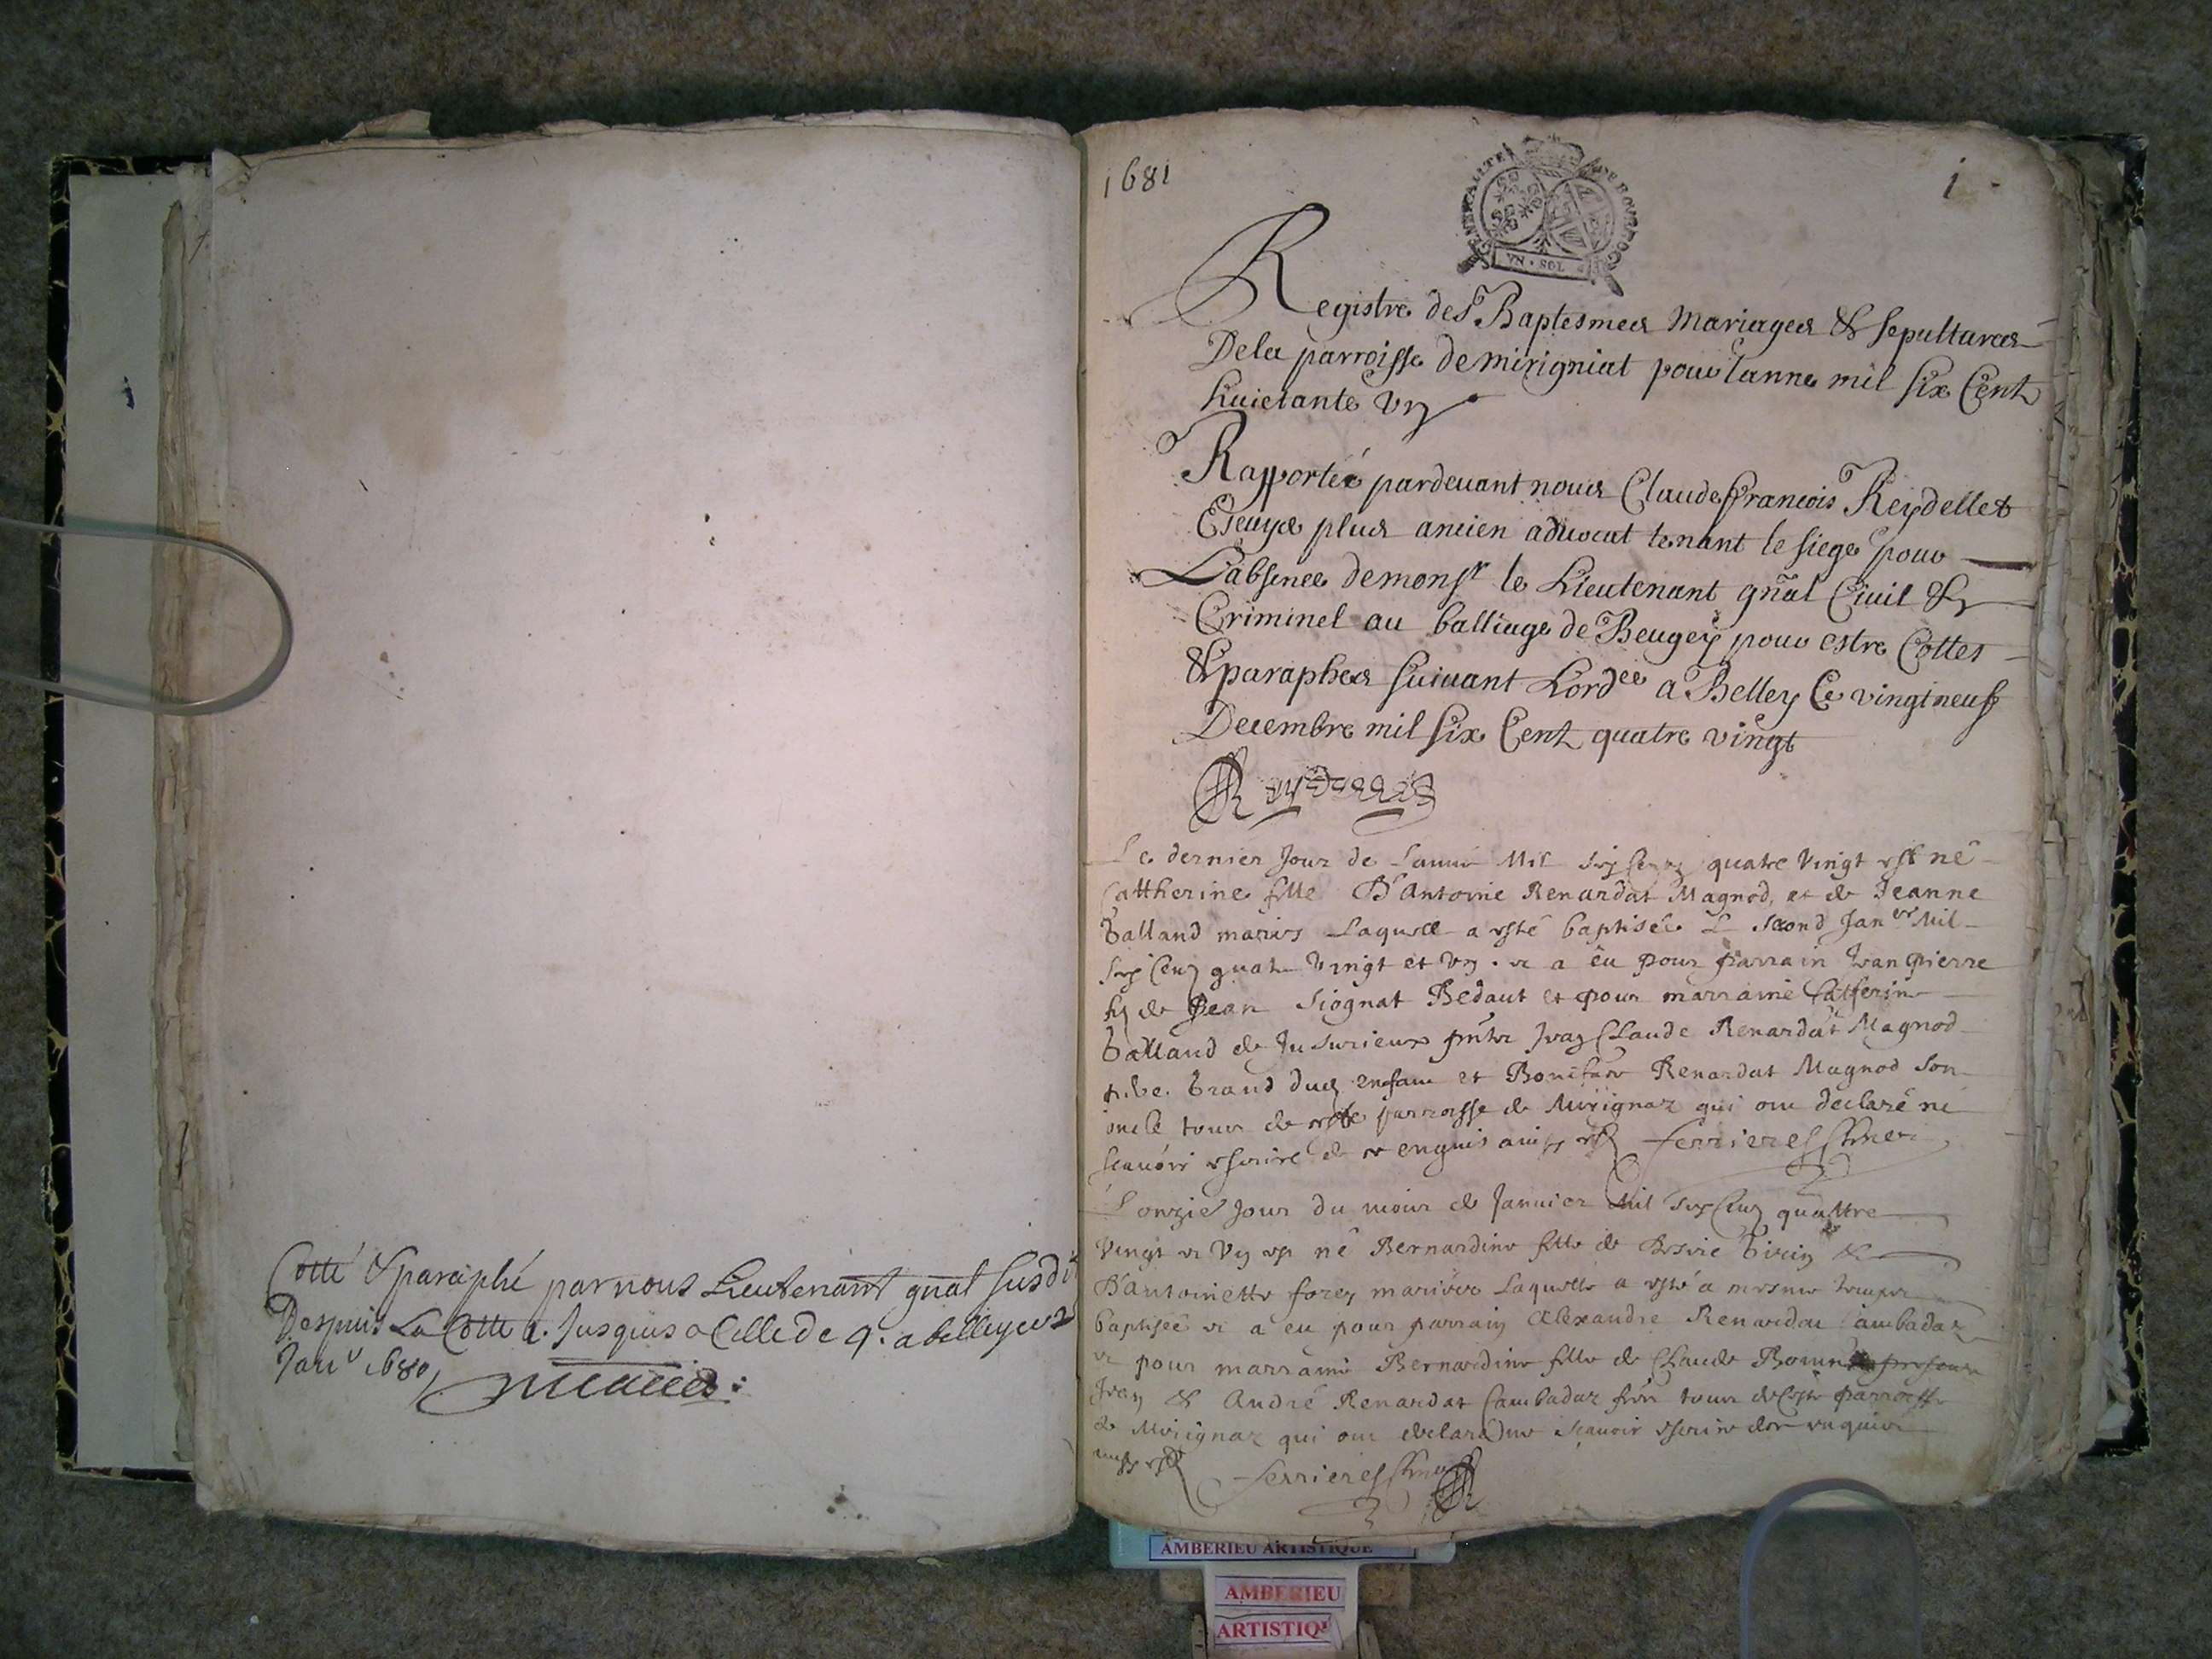 Cotté & paraphé par nous Lieutenant gnal susdit
Despuis La Cotte 1. Jusques a Celle de 9. a belley ce 2
Janv 1680
1681
GENERALITE DE BOURGOG
VN · SOL
1
Registre des Baptesmes Mariages & sepultures
Dela parroisse de mirigniat pour lanne mil six Cent
huictante Un
Rapportéé pardeuant nous Claude francois Reydellet
Escuyer plus ancien aduocat tenant le siege pour
L'absence de monsr le Lieutenant gnal Ciuil &
Criminel au balliage de Beugey pour estre Cottes
& paraphes suiuant Lordce a Belley Ce vingt neuf
Decembre mil six Cent quatre vingt
Reydellet
Le dernier Jour de Lanné Mil six Cent quatre Vingt est né
Cattherine fille D'Antoine Renardat Magnod, et de Jeanne
balland mariés Laquelle a esté baptisée Le second Janer Mil
six Cent quatre Vingt et Un. et a eu pour parrain Jean pierre
fils de Jean Siognat Bedaut et pour marraine Catherine
balland de Jusurieux Claude Renardat Magnod
grand enfant et Renardat Magnod son
oncle tous de ceste parroisse de Mirignaz qui ont declaré ne
scauoir escrire de ce enquis ferrieres
L'onzie Jour du mois de Januier Mil six Cent quattre
Vingt et Un est né Bernardine fille de &
D'antoinette forey mariés Laquelle a esté a mesme temps
baptiseé et a eu pour parrain Alexandre Renardat Cambadaz
et pour marraine Bernardine fille de Claude
Jean & André Renardat Cambadaz tous de Ceste parroisse
de Mirignaz qui ont declaré ne scauoir escrire de ce enquis
ferrieres
AMBERIEU ARTISTIQUE
AMBERIEU
ARTISTIQ